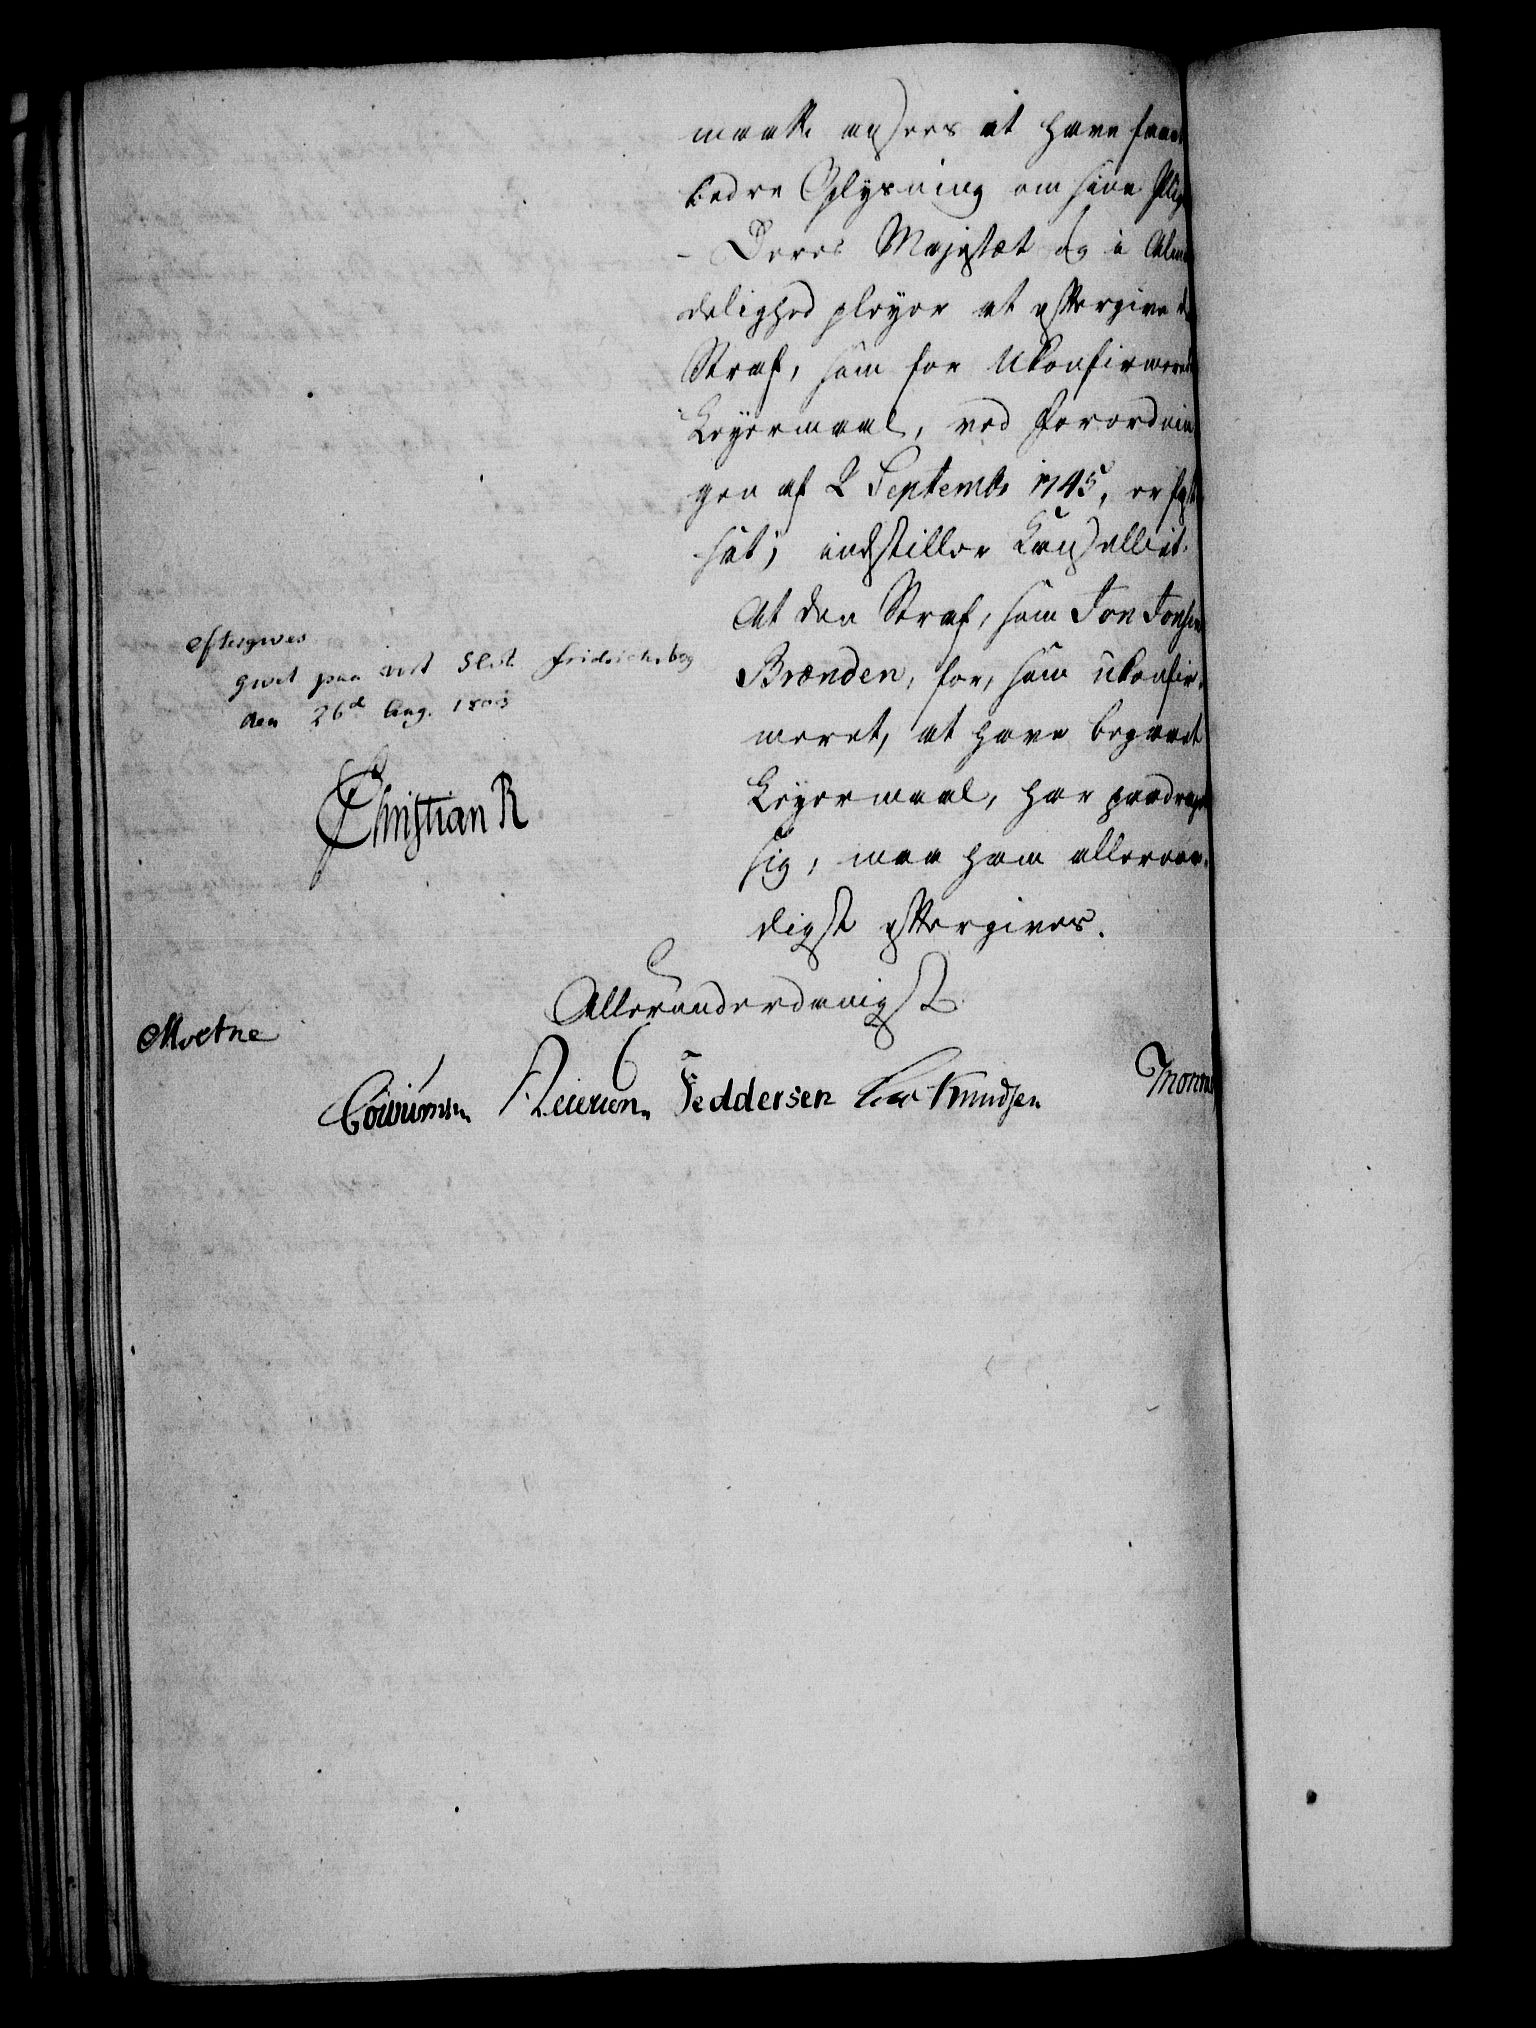 maatte ansees at have faaet
bedre Oplysning om sine Plig
- Deres Majestæt og i Almin
delighed pleyer at eftergive d
Straf, som for Ukonfirmeredes
Leyermaal, ved Forordnin
gen af 2 Septembr 1745, er fast
sat; indstiller Kanselliet:
At den Straf, som Jon Jonsen
Brænden, for, som ukonfir-
meret, at have begaaet
Leyermaal, har paadraget
sig, maa ham allernaa-
digst eftergives.
eftergives
givet paa vort Slot Fridrichsbrg
den 26d Aug. 1803
Christian R
Allerunderdanigst
Moetne
Feddersen Knudsen Monra